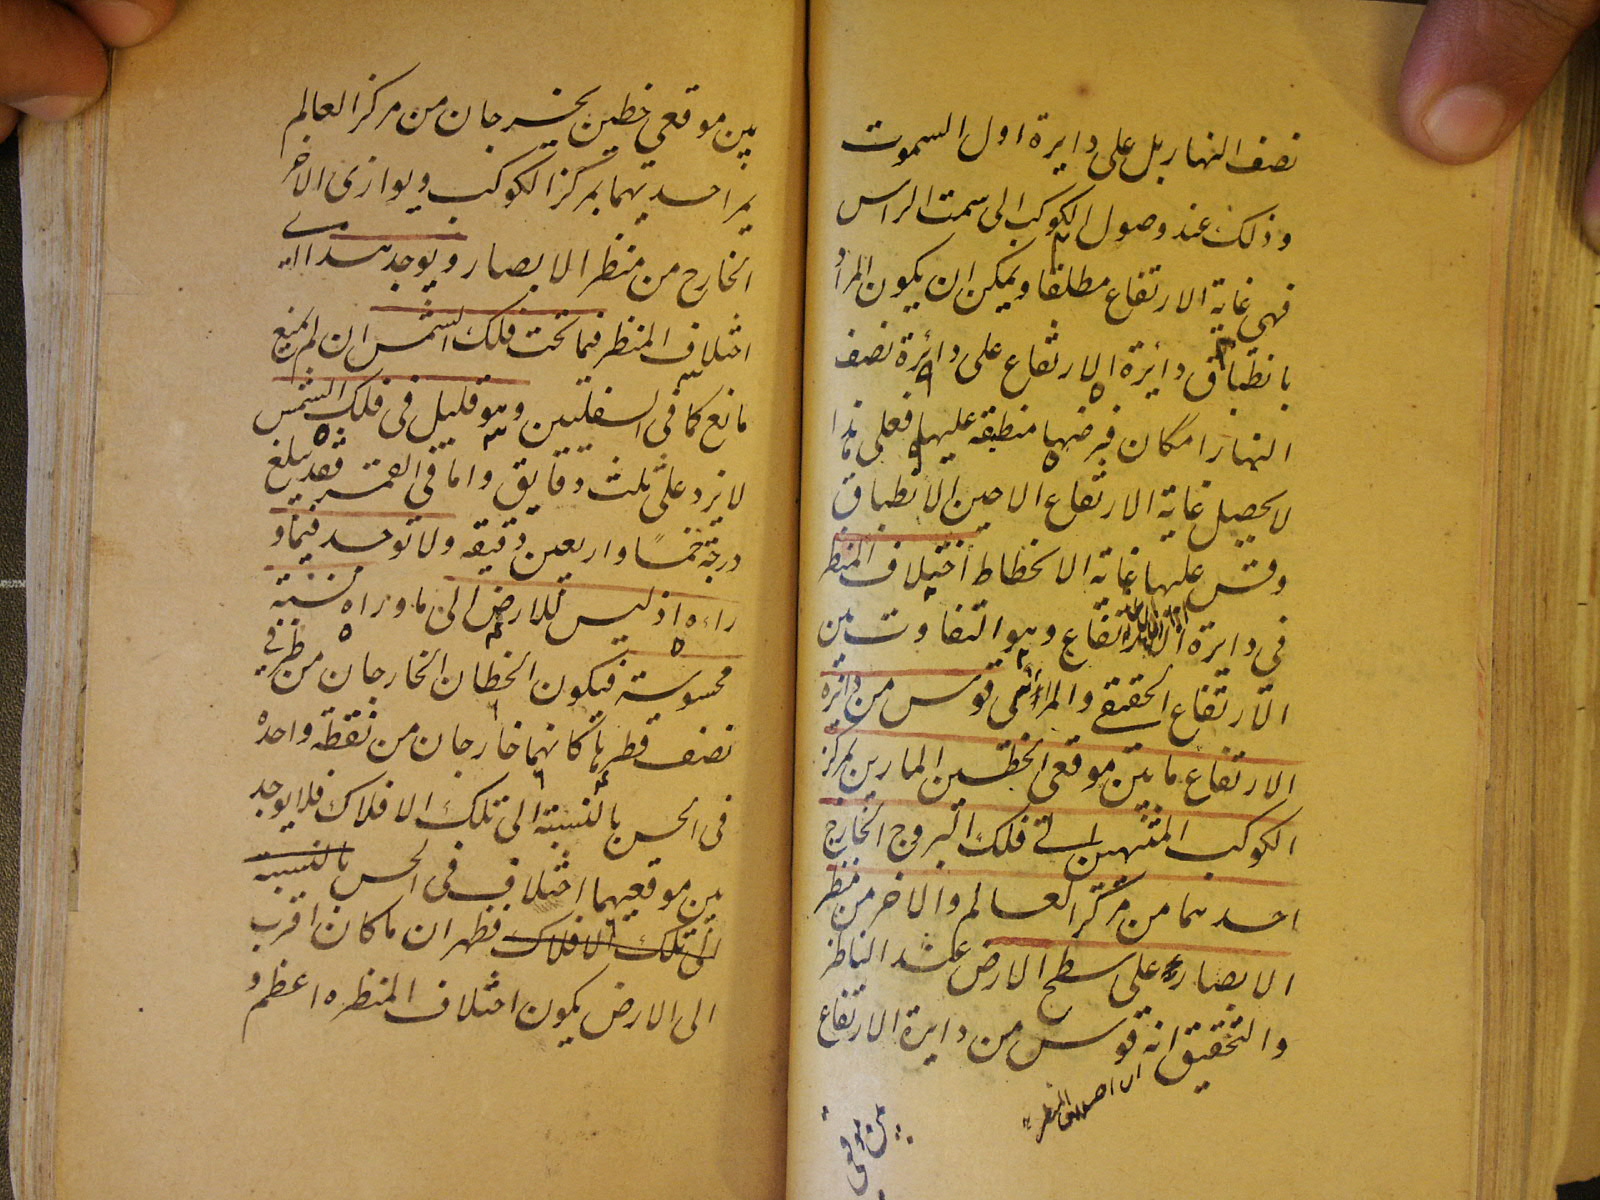 نصف النهار بل على دايرة اول السموت
وذلك عند وصول الكوكب الى سمت الراس
فهى غاية الارتفاع مطلقا ويمكن ان يكون المراد
بانطباق دائرة الارتفاع على دائرة نصف
النهار امكان فرضها منطبقه عليها فعلى هذا
لا يحصل غاية الارتفاع الا حين الانطباق
وقس عليها غاية الانحطاط اختلاف المنظر
فى دايرة الارتفاع وهو التفاوت بين
الارتفاع الحقيقے والمرائى قوس من دائرة
الارتفاع ما بين موقعى الخطين المارين بمركز
الكوكب المنتهين الى فلك البروج الخارج
احدهما من مركز العالم والاخر من منظر
الابصار على سطح الارض عند الناظر
والتحقيق انه قوس من دايرة الارتفاع
اى اختلاف المنظر
بين موقعى
بين موقعي خطين يخرجان من مركز العالم
يمر احديهما بمركز الكوكب ويوازى الاخر
الخارج من منظر الابصار ويوجد هذا اے
اختلاف المنظر فيما تحت فلك الشمس ان لم يمنع
مانع كما فى السفليين وهو قليل فى فلك الشمس
لا يزيد على ثلث دقايق واما فى القمر فقد يبلغ
درجة خمسًا واربعين دقيقه ولا توجد فيما و
راءه اذ ليس للارض الى ما وراه نسبة
محسوسة فيكون الخطان الخارجان من طرفي
نصف قطرها كانهما خارجان من نقطة واحدة
فى الحس بالنسبة الى تلك الافلاك فلا يوجد
بين موقعيهما اختلاف فى الحس بالنسبة
الى تلك الافلاك فظهر ان ما كان اقرب
الى الارض يكون اختلاف المنظره اعظم و